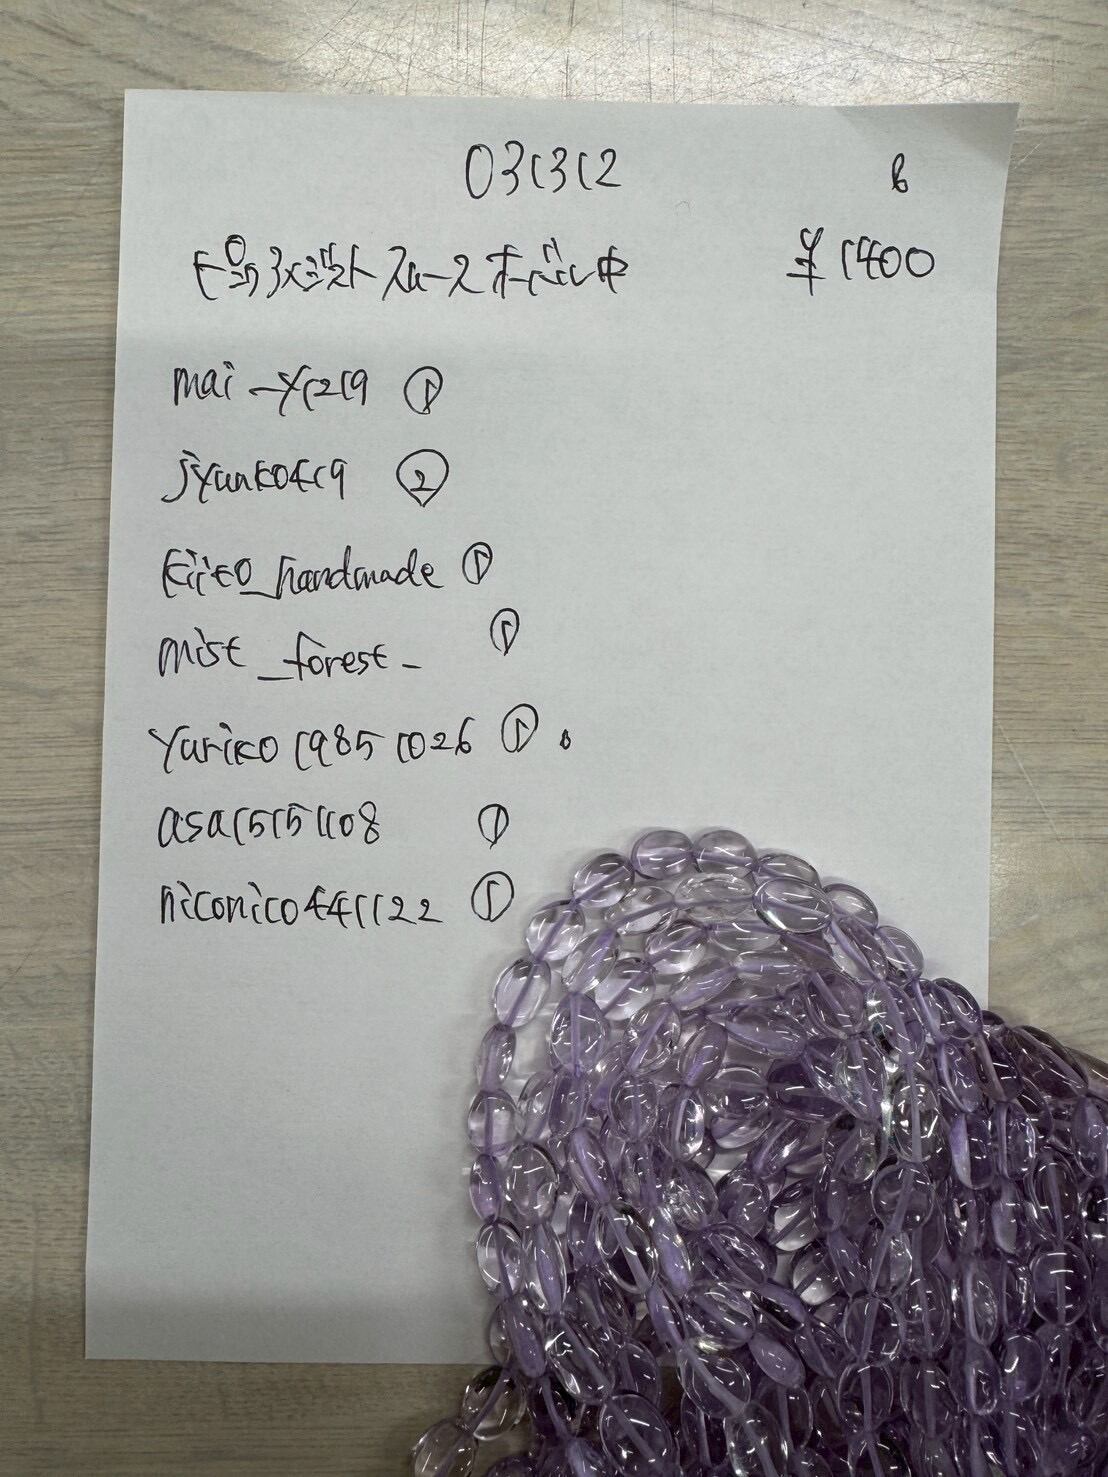 031312 6
ピンクアメジスト スムースオーバル中 ¥1400
mai_y1219 ①
jyunko419 ②
kiiko_handmade ①
mist_forest_ ①
yuriko19851026 ①
asa15151108 ①
niconico441122 ①